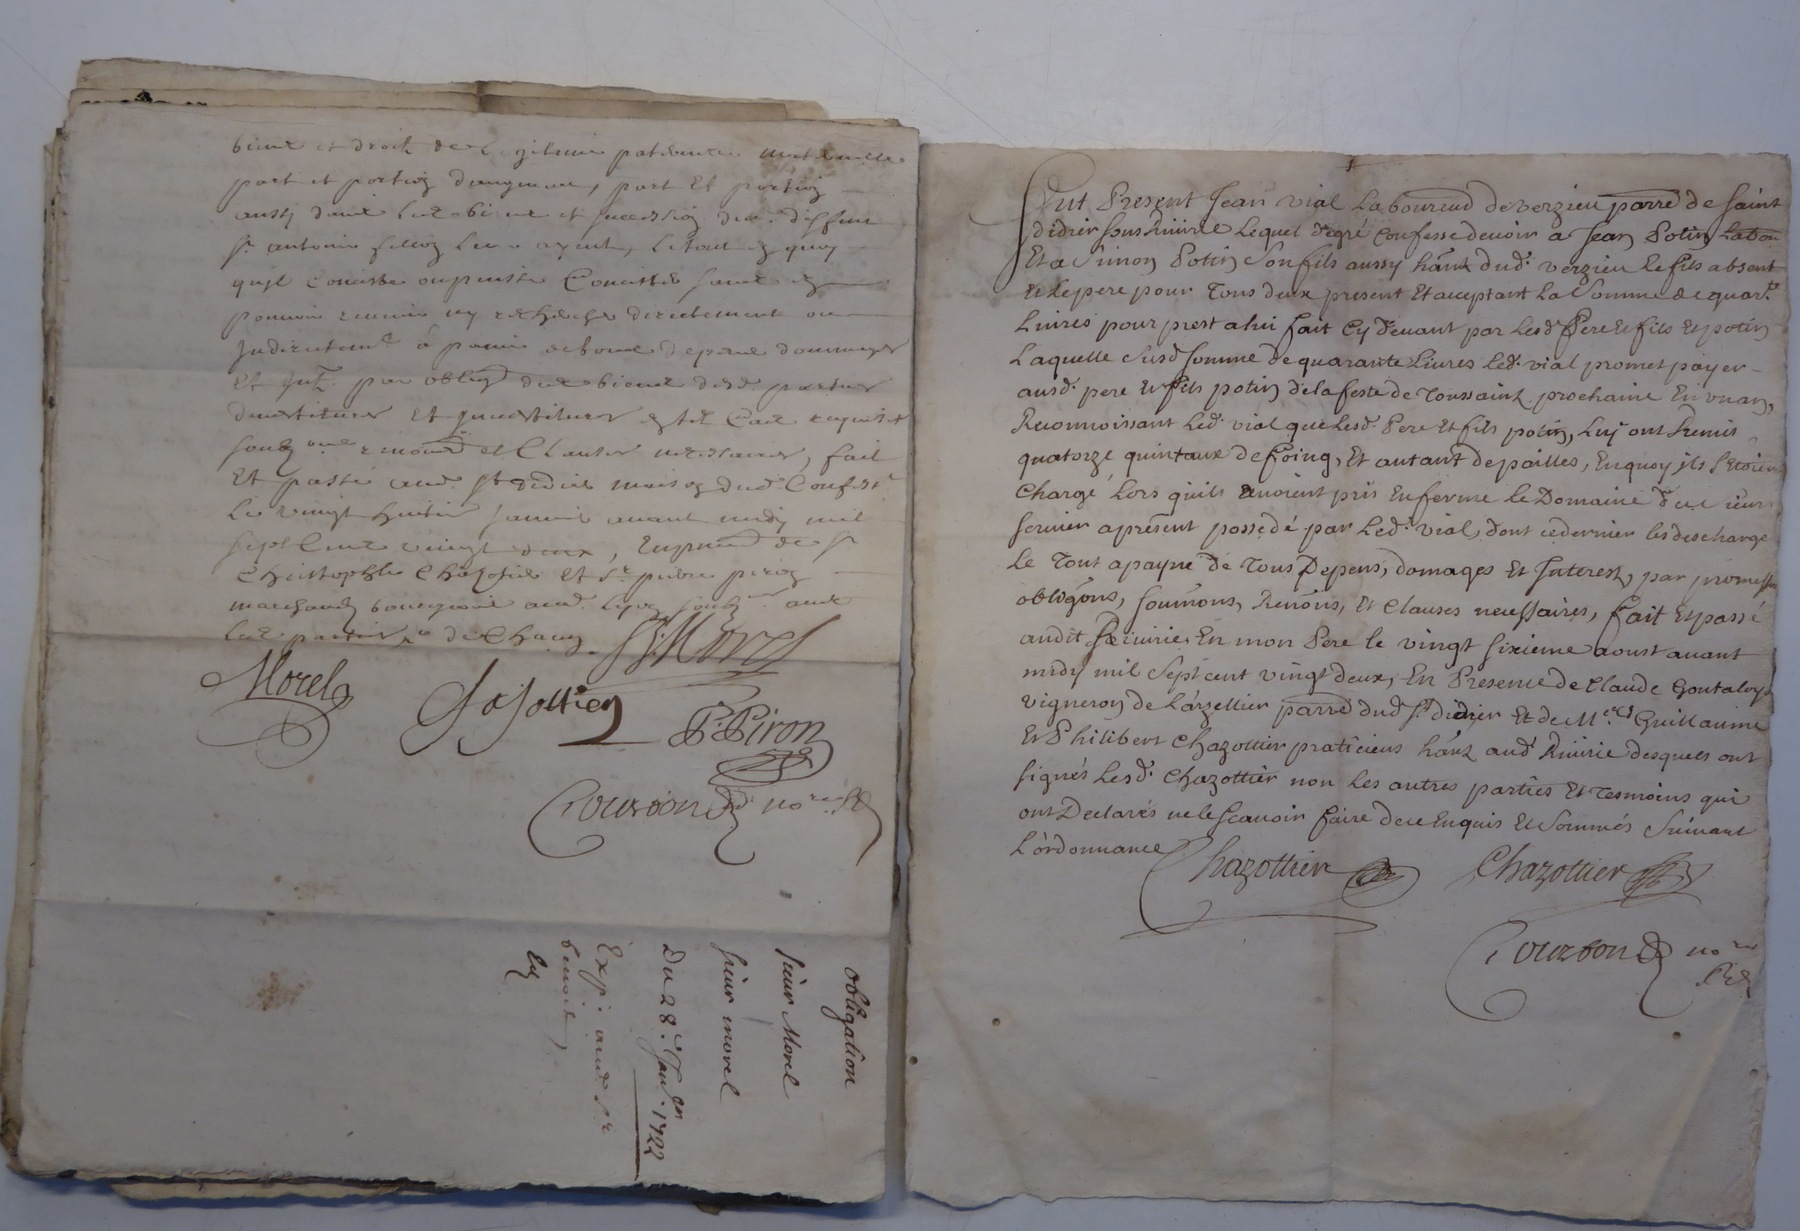 biens et droits de legitime paternelle maternelle
part et portion daugment, part Et portion
aussy dans les biens et succession dud. deffunt
sr. antoine leur ayeul, le tout en quoy
qu'il Consiste ou puisse Consister sans en
pouvoir jamais rien rechercher directement ou
Indirectemt. à peine de tous depens dommages
et Intz. par obligon des biens desd. parties
soubz. renond et Clauses necessaires, fait
Et passé aud. St didier maison dud. Confess.t
Le vingt huitie janvier avant midy mil
sept Cent vingt deux, En presence de sr
Christophle Chazottier Et Sr. pierre piron
marchands bourgeois aud. Lyon soubz.nés avec
les parties, de Chacun
Morel
Morel
Chasottier
P. Piron
Courbon nore. Rl
obligation
sieur Morel
sieur morel
Du 28e. Janer. 1722
Exp. aud. Sr
benoist
Fut Present Jean vial Laboureur de verzieu parre de saint
didier sous Riuirie Lequel degré Confesse devoir a Jean Potin Labou
Et a Simon Potin Son fils aussy hānt dud. verzieu le fils absent
Et le pere pour Tous deux present Et acceptant La Somme de quarte
Livres pour prest a lui fait Cy devant par Lesd Pere Et fils Et potin
Laquelle Susd somme de quarante Livres Led. vial promet payer
ausd. pere Et fils potin de la feste de Toussaint prochaine En un an,
Reconnoissant Led. vial que Lesd. Pere Et fils potin, Luy ont Remis
quatorze quintaux de foing, Et autant de pailles, En quoy ils S'etoient
Chargé, Lors quils avoient pris En ferme Le Domaine du sieur
fernier apresent possedé par Led. vial, dont ce dernier les descharge
Le Tout a payne de Tous Depens, domages Et Interest, par promesses
obligōns, soumōns, Renōns, Et Clauses necessaires, fait Et passé
audit Riuirie En mon Pere le vingt sixieme aoust avant
midy mil Sept cent vingt deux, En Presence de Claude Goutaloy
vigneron de Larzellier parre dud St. didier Et de Mers Guillaume
Et Philibert Chazottier praticiens hānt aud Riuirie desquels ont
signés Lesd. Chazottier non Les autres parties Et Tesmoins qui
ont Declarés ne le Scavoir faire de ce Enquis Et Sommés Suivant
L'ordonnance
Chazottier
Chazottier
Courbon nore
Rl